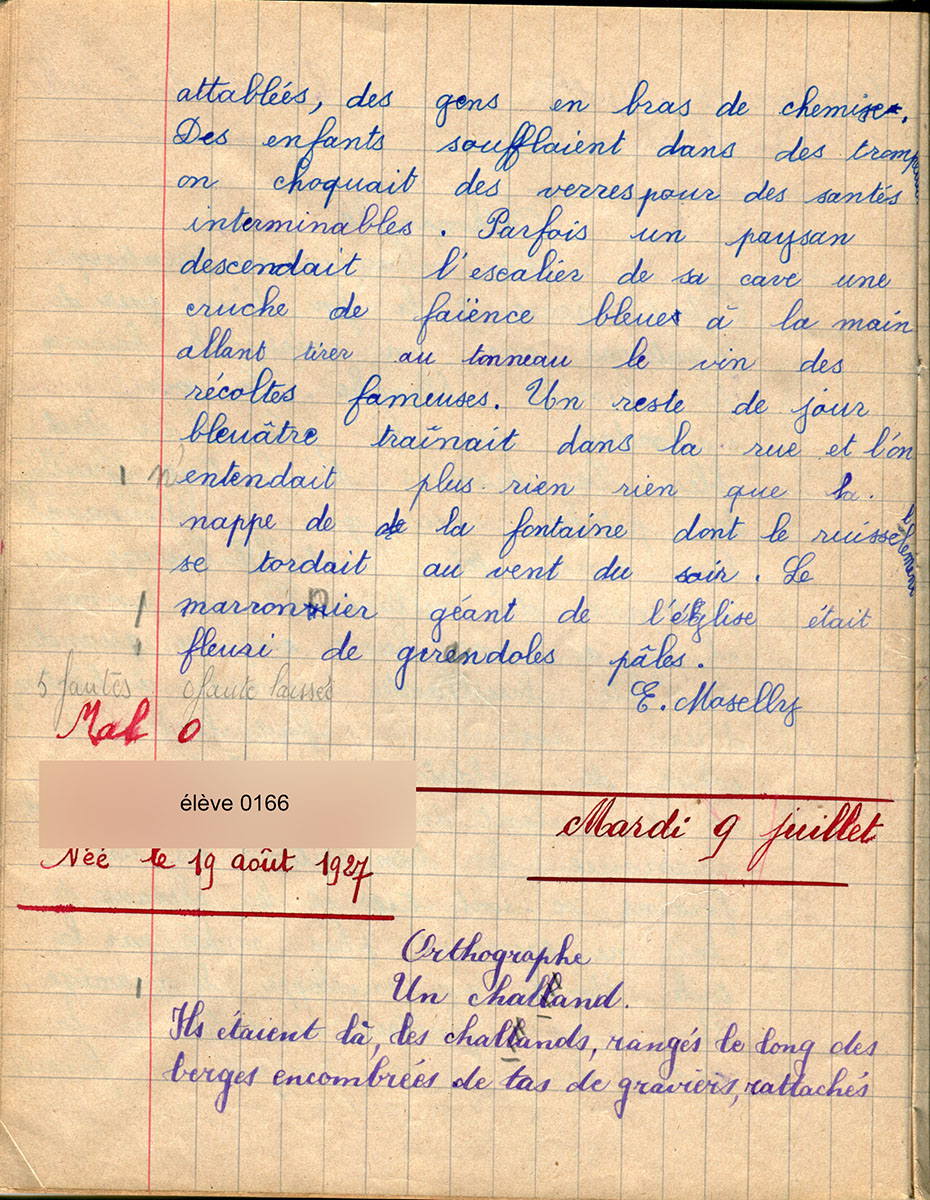 attablées, des gens en bras de chemise.
Des enfants soufflaient dans des
on choquait des verres pour des santés
interminables. Parfois un paysan
descendait l'escalier de sa cave une
cruche de faïence bleue à la main
allant tirer au tonneau le vin des
récoltes fameuses. Un reste de jour
bleuâtre traînait dans la rue et l'on
1 n'entendait plus rien rien que la
nappe de de la fontaine dont le ruissèlement
se tordait au vent du soir. Le
1 marronnier géant de l'église était
1 fleuri de girendoles pâles.
5 fautes 0 faute laissés
E. Moselly
Mal 0
élève 0166
Mardi 9 juillet
Néé le 19 août 1927
Orthographe
1 Un challand.
Ils étaient là, les challands, rangés le long des
berges encombrées de tas de graviers, rattachés